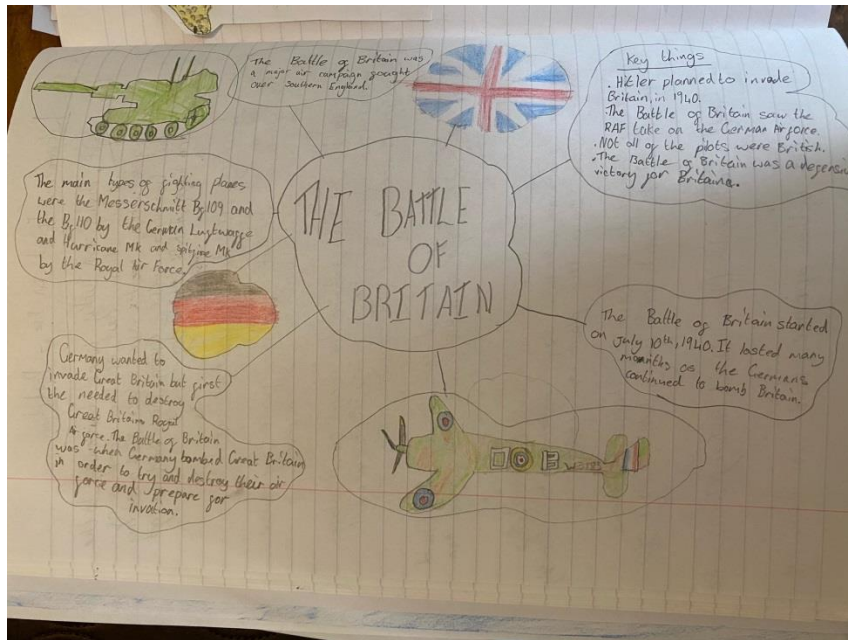 The Battle of Britain was
a major air campaign fought
over Southern England.
Key things
. Hitler planned to invade
Britain, in 1940.
. The Battle of Britain saw the
RAF take on the German Airforce.
. Not all of the pilots were British.
. The Battle of Britain was a defensive
victory for Britains.
The main types of fighting planes
were the Messerschmitt Bf109 and
the Bf110 by the German Luftwaffe
and Hurricane MK and spitfire MK
by the Royal Air Force.
THE BATTLE
OF
BRITAIN
The Battle of Britain started
on July 10th, 1940. It lasted many
months as the Germans
continued to bomb Britain.
Germany wanted to
invade Great Britain but first
the needed to destroy
Great Britains Royal
Air force. The Battle of Britain
was when Germany bombed Great Britain
in order to try and destroy their air
force and prepare for
invation.
B W3185